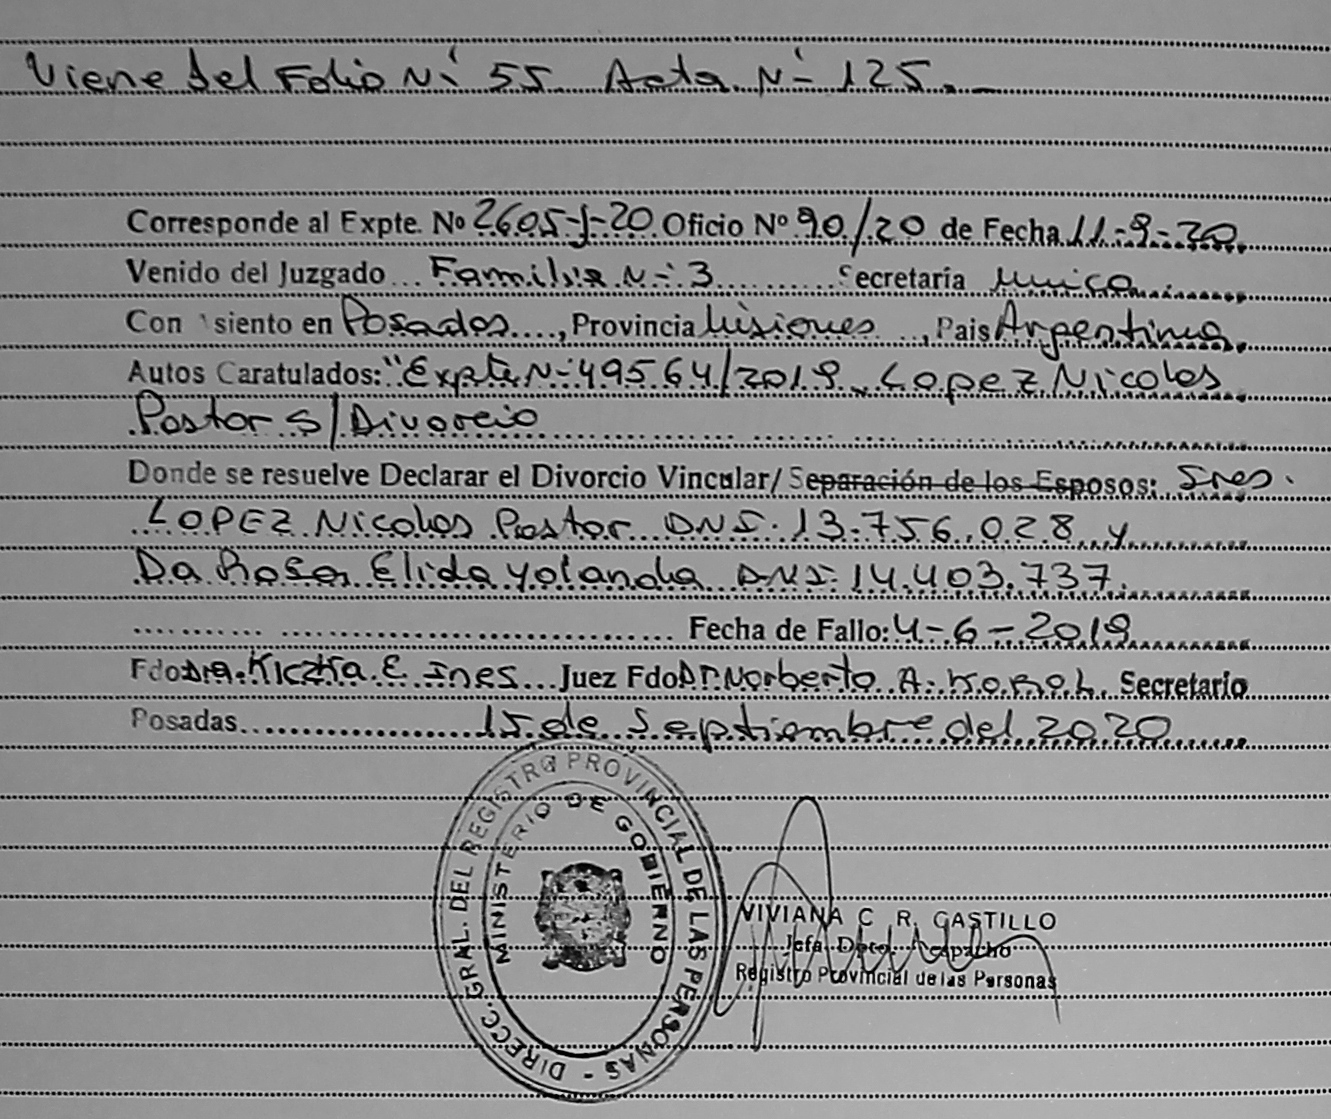 Viene del Folio Nº 55. Acta Nº 125.
Corresponde al Expte. Nº 2605-J-20 Oficio Nº 90/20 de Fecha 11-9-20
Venido del Juzgado Familia Nº 3 Secretaría Unica
Con siento en Posadas, Provincia Misiones, Pais Argentina
Autos Caratulados: "Expte Nº 49564/2019 Lopez Nicolas
Pastor S/Divorcio
Donde se resuelve Declarar el Divorcio Vincular/ Separación de los Esposos: Sres.
LOPEZ Nicolas Pastor DNI. 13.756.028 y
Da Rosa Elida Yolanda DNI: 14.403.737.
Fecha de Fallo: 4-6-2019
Fdo Dra. Kiczka E. Ines Juez Fdo Dr Norberto A. Korol Secretario
Posadas 15 de Septiembre del 2020
DIRECC. GRAL. DEL REGISTRO PROVINCIAL DE LAS PERSONAS -
MINISTERIO DE GOBIERNO
VIVIANA C. R. CASTILLO
Jefa Dpto. Despacho
Registro Provincial de las Personas